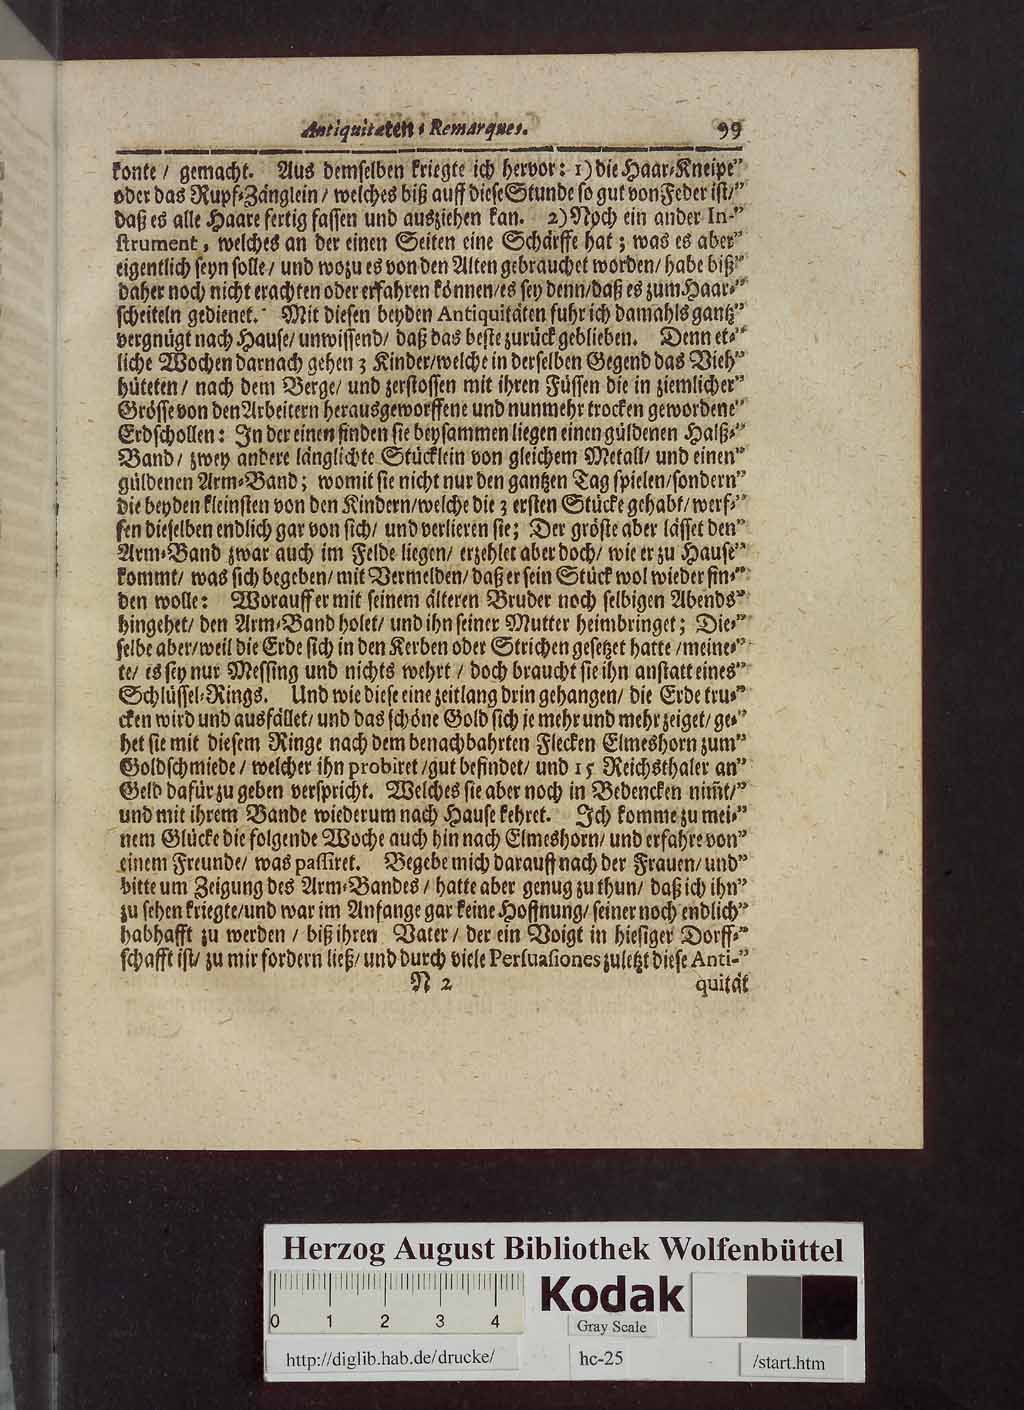 Antiquitaten⸗Remarques. 99
konte / gemacht. Aus demselben kriegte ich hervor: 1) die Haar⸗Kneipe”
oder das Rupf⸗Zänglein / welches biß auff diese Stunde so gut von Feder ist/”
daß es alle Haare fertig fassen und ausziehen kan. 2) Noch ein ander In-”
strument, welches an der einen Seiten eine Schärffe hat; was es aber”
eigentlich seyn solle / und wozu es von den Alten gebrauchet worden / habe biß”
daher noch nicht erachten oder erfahren können / es sey denn / daß es zum Haar⸗”
scheiteln gedienet. Mit diesen beyden Antiquitäten fuhr ich damahls gantz”
vergnügt nach Hause / unwissend / daß das beste zurück geblieben. Denn et⸗”
liche Wochen darnach gehen 3 Kinder / welche in derselben Gegend das Vieh”
hüteten / nach dem Berge / und zerstossen mit ihren Füssen die in ziemlicher”
Grösse von den Arbeitern herausgeworffene und nunmehr trocken gewordene”
Erdschollen: In der einen finden sie beysammen liegen einen güldenen Halß⸗”
Band / zwey andere länglichte Stücklein von gleichem Metall / und einen”
güldenen Arm⸗Band; womit sie nicht nur den gantzen Tag spielen / sondern”
die beyden kleinsten von den Kindern / welche die 3 ersten Stücke gehabt / werf⸗”
fen dieselben endlich gar von sich / und verlieren sie; Der gröste aber lässet den”
Arm⸗Band zwar auch im Felde liegen / erzehlet aber doch / wie er zu Hause”
kommt / was sich begeben / mit Vermelden / daß er sein Stück wol wieder fin⸗”
den wolle: Worauff er mit seinem älteren Bruder noch selbigen Abends”
hingehet / den Arm⸗Band holet / und ihn seiner Mutter heimbringet; Die⸗”
selbe aber / weil die Erde sich in den Kerben oder Strichen gesetzet hatte / meine⸗”
te / es sey nur Messing und nichts wehrt / doch braucht sie ihn anstatt eines”
Schlüssel⸗Rings. Und wie diese eine zeitlang drin gehangen / die Erde tru⸗”
cken wird und ausfället / und das schöne Gold sich je mehr und mehr zeiget / ge⸗”
het sie mit diesem Ringe nach dem benachbahrten Flecken Elmeshorn zum”
Goldschmiede / welcher ihn probiret / gut befindet / und 15 Reichsthaler an”
Geld dafür zu geben verspricht. Welches sie aber noch in Bedencken nim̃t /”
und mit ihrem Bande wiederum nach Hause kehret. Ich komme zu mei⸗”
nem Glücke die folgende Woche auch hin nach Elmeshorn / und erfahre von”
einem Freunde / was passiret. Begebe mich darauff nach der Frauen / und”
bitte um Zeigung des Arm⸗Bandes / hatte aber genug zu thun / daß ich ihn”
zu sehen kriegte / und war im Anfange gar keine Hoffnung / seiner noch endlich”
habhafft zu werden / biß ihren Vater / der ein Voigt in hiesiger Dorff⸗”
schafft ist / zu mir fordern ließ / und durch viele Persuasiones zuletzt diese Anti-”
N 2 quität
Herzog August Bibliothek Wolfenbüttel
0 1 2 3 4
Kodak
Gray Scale
http://diglib.hab.de/drucke/ hc-25 /start.htm